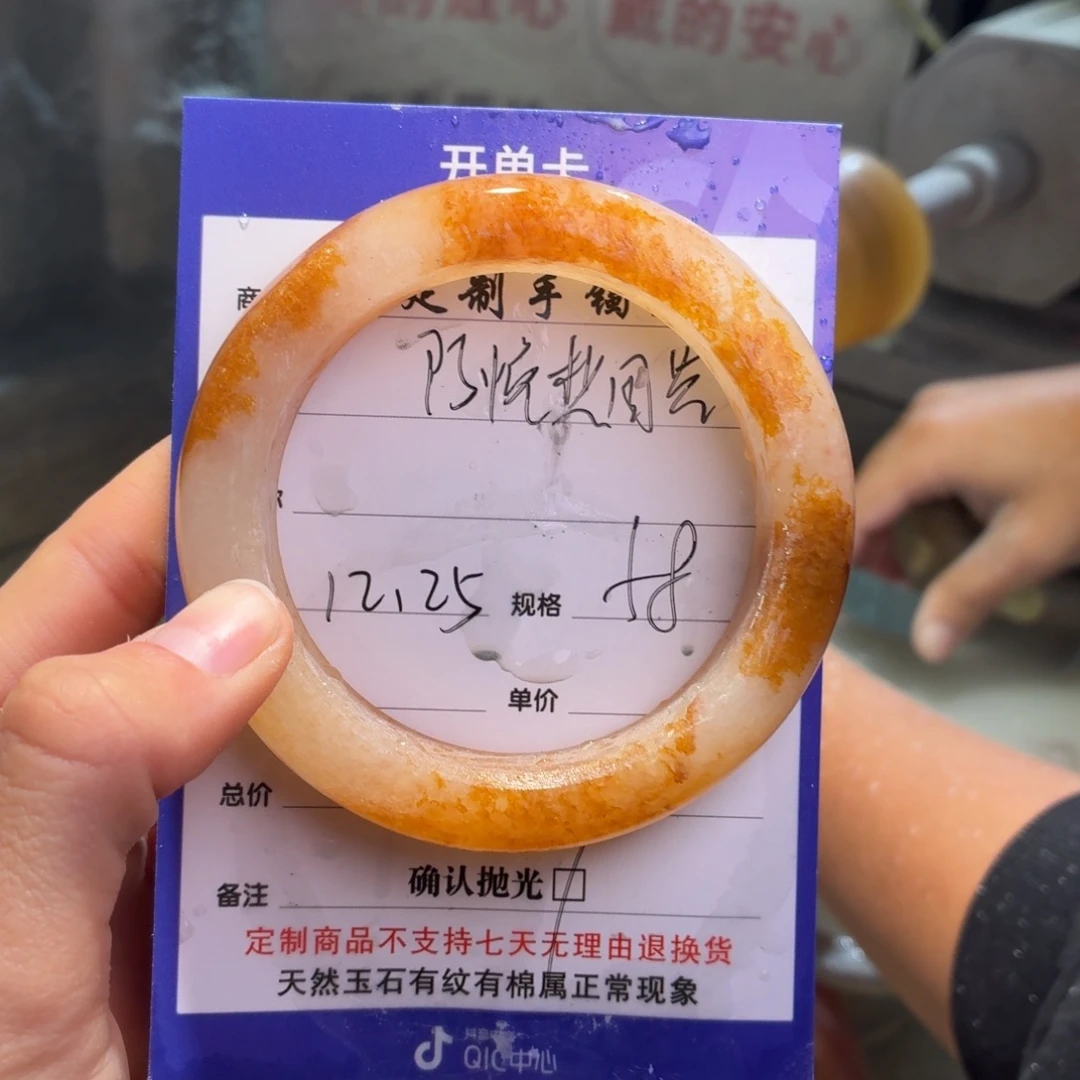 戴的安心
开单卡
商
定制手镯
12.25 规格 58
单价
总价
确认抛光
备注
定制商品不支持七天无理由退换货
天然玉石有纹有棉属正常现象
QIC中心